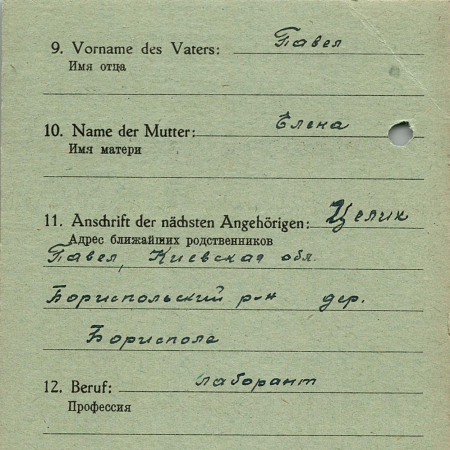 9. Vorname des Vaters: Павел
Имя отца
10. Name der Mutter: Елена
Имя матери
11. Anschrift der nächsten Angehörigen: Целик
Адрес ближайших родственников
Павел, Киевская обл.
Бориспольский р-н дер.
Борисполе
12. Beruf: лаборант
Профессия